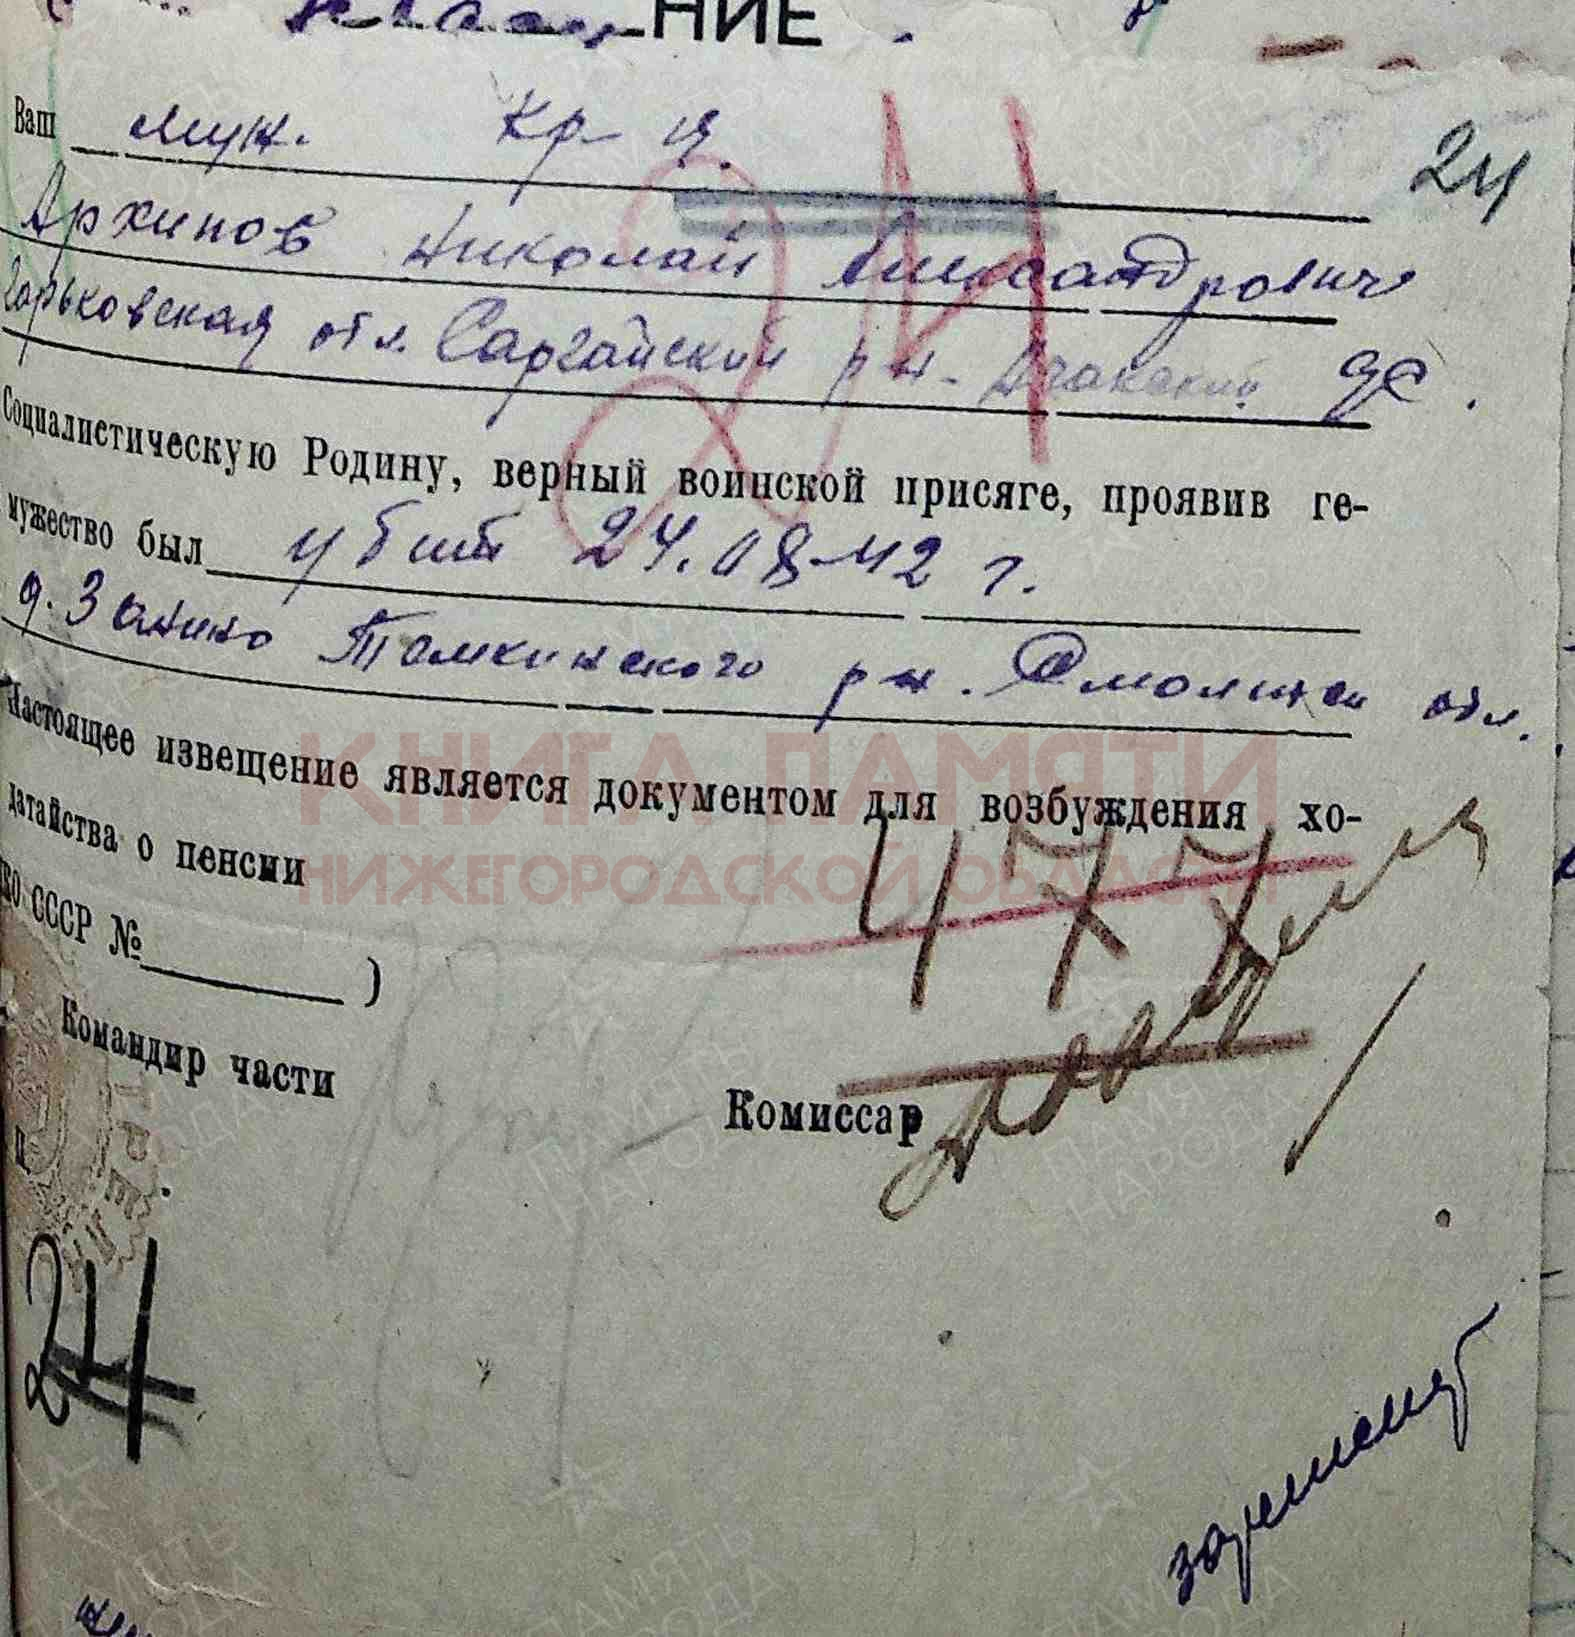 НИЕ
Ваш муж. кр-ц. 24
Архипов Николай Александрович
24
Горьковская обл. Саргайский р-н.
Социалистическую Родину, верный воинской присяге, проявив ге-
мужество был убит 24.08-42 г.
д. Занино Темкинского р-н. Смоленск обл.
Настоящее извещение является документом для возбуждения хо-
датайства о пенсии
КНИГА ПАМЯТИ
НИЖЕГОРОДСКОЙ ОБЛАСТИ
НКО СССР № )
477
Командир части
Комиссар
24
ПАМЯТЬ НАРОДА